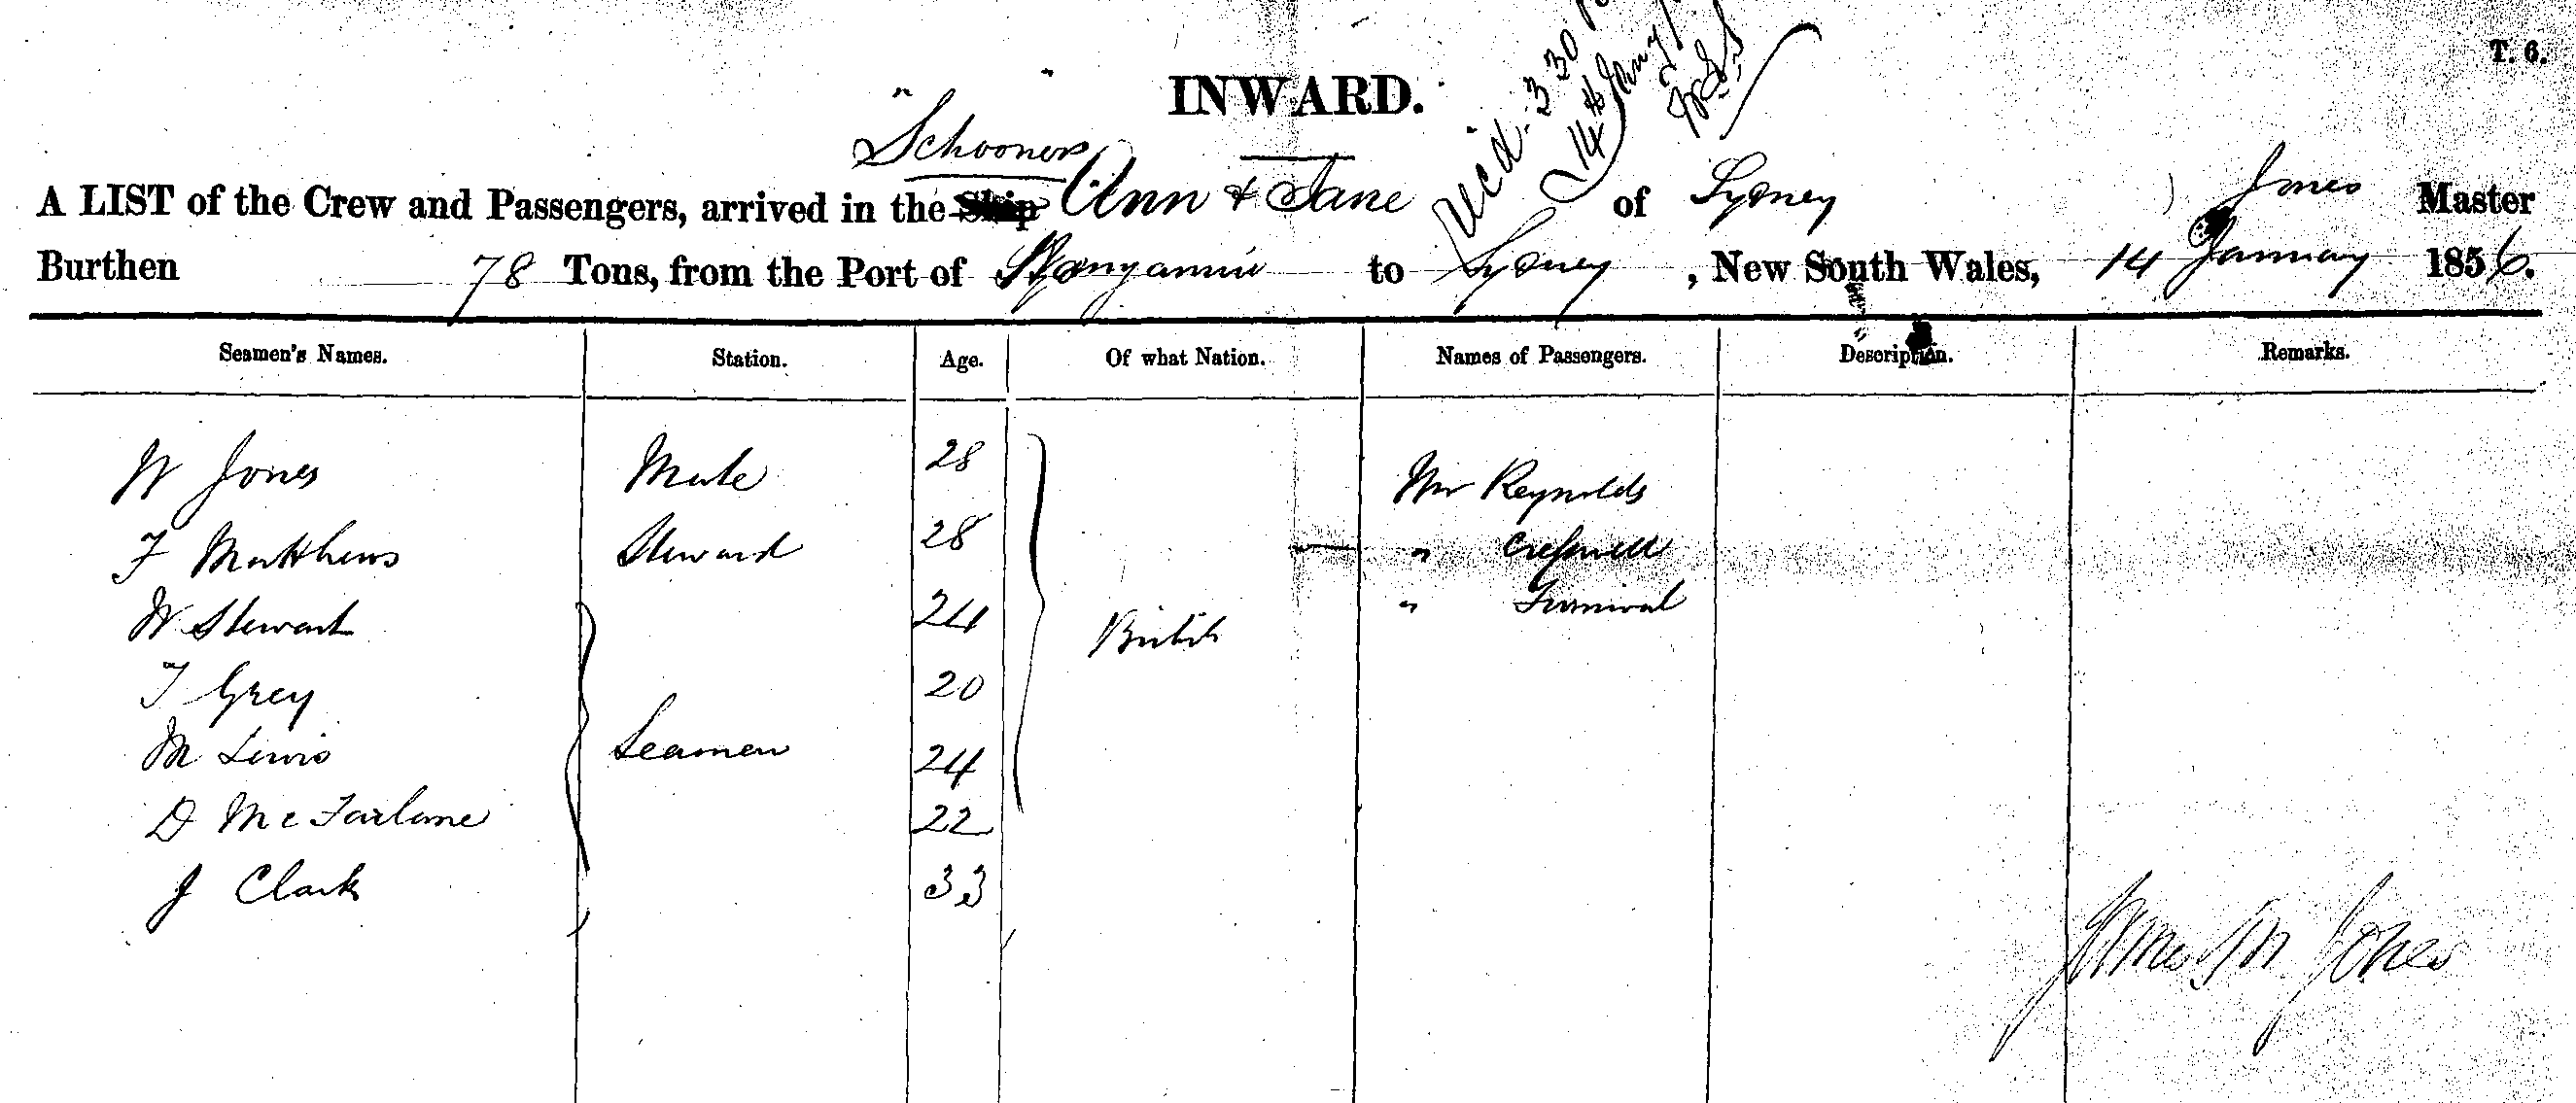 T. 6.
INWARD.
recd. 3 30
14th Jany
Schooner
A LIST of the Crew and Passengers, arrived in the Ship Ann & Jane of Sydney Jones Master
Burthen 78 Tons, from the Port of to Sydney, New South Wales, 14 January 1856.
Seamen's Names. Station. Age. Of what Nation. Names of Passengers. Description. Remarks.
W Jones Mate 28 Mr Reynolds
F Matthews Steward 28 " Cresswell
W Stewart 24 British " Furnival
T Grey 20
M Lewis Seamen 24
D McFarlane 22
J Clark 33
James M Jones